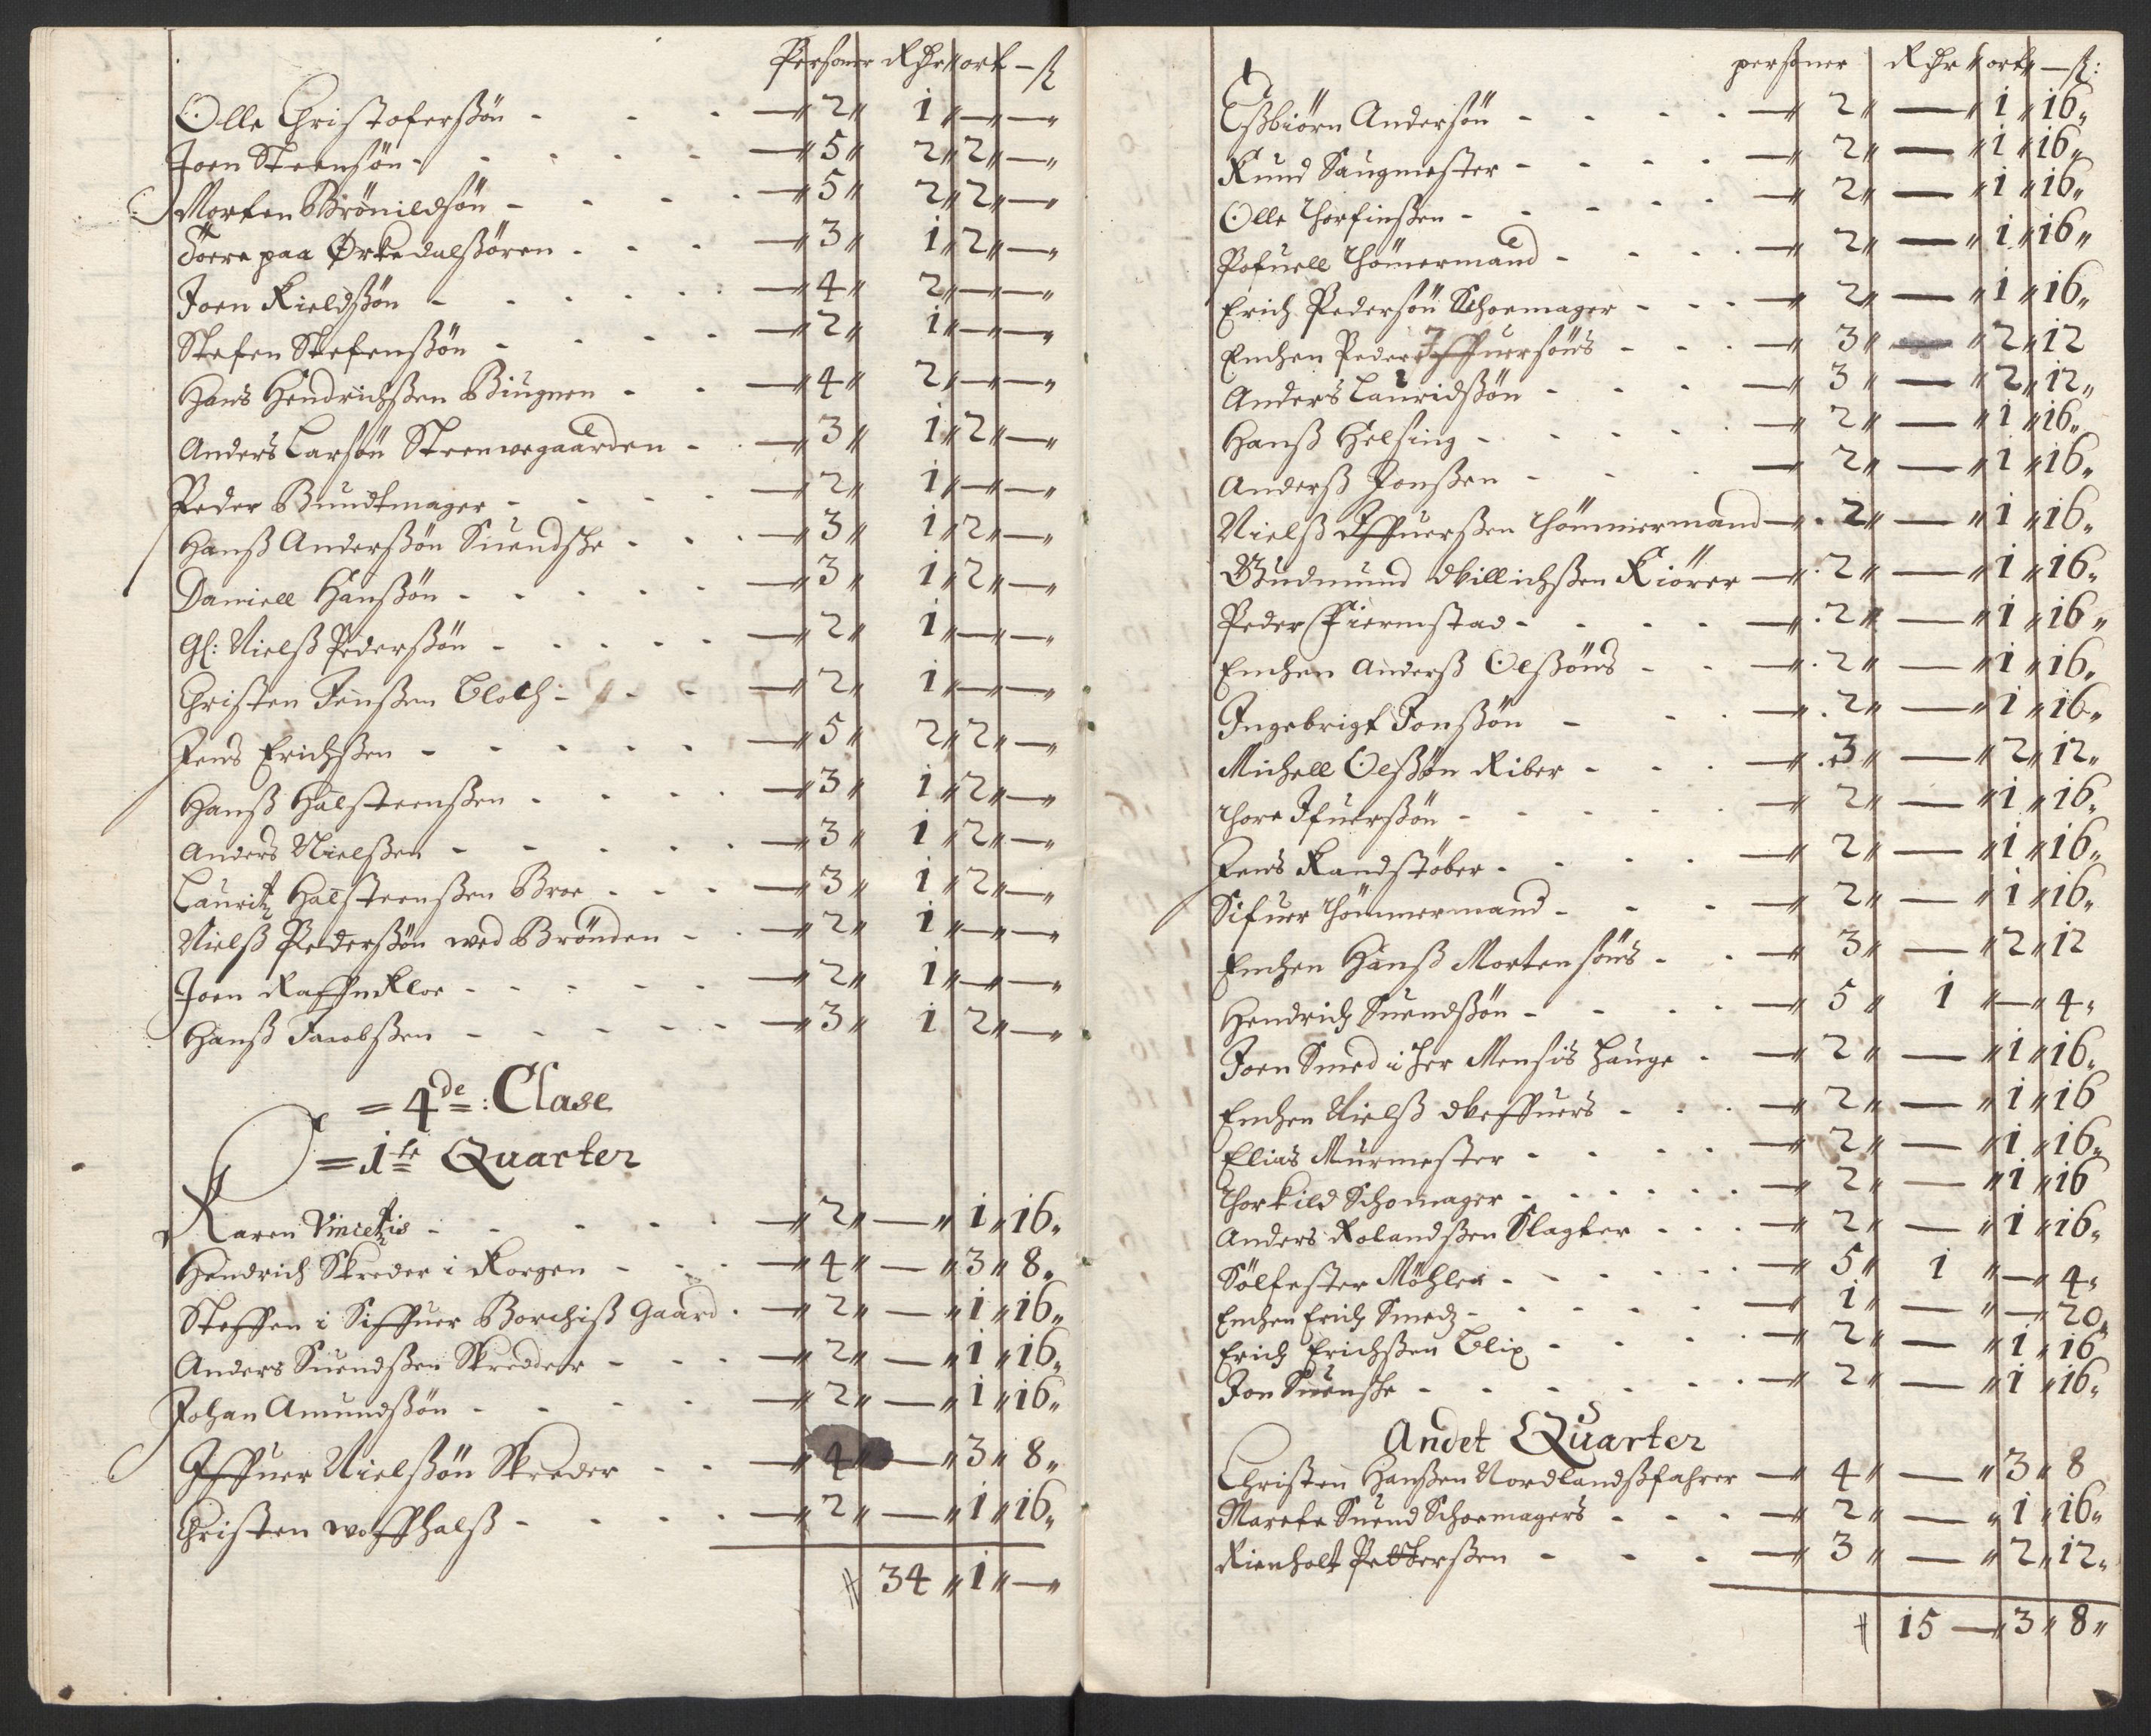 Personer Rdr ort ß
Olle Christoferßön - - - 2 1 — —
Joen Steensön - - - 5 2 2 —
Morten Brönildsön - - - 5 2 2 —
Toere paa Ørkedalßören - - - 3 1 2 —
Joen Kieldßön - - - 4 2 — —
Stefen Stefenßön - - - 2 1 — —
Hans Hendrichßen Biugnen - - 4 2 — —
Anders Larsön Steenwegaarden - - 3 1 2 —
Peder Bundtmager - - - 2 1 — —
Hanß Anderßön Suendsche - - - 3 1 2 —
Daniell Hanßön - - - 3 1 2 —
Gl: Nielß Pederßön - - - 2 1 — —
Christen Jenßen Bloch - - - 2 1 — —
Jens Erichßen - - - 5 2 2 —
Hanß Halsteenßen - - - 3 1 2 —
Anders Nielßen - - - 3 1 2 —
Lauritz Halsteenßen Broe - - - 3 1 2 —
Nielß Pederßön wed Brönden - - 2 1 — —
Joen Raffnkloe - - - 2 1 — —
Hanß Jacobßen - - - 3 1 2 —
= 4de: Clase
= 1ste Quarter
Karen Vincetzis - - - 2 — 1 16
Hendrich Skreder i Korgen - - - 4 — 3 8
Steffen i Siffuer Borchiß Gaard - 2 — 1 16
Anders Suendßen Skreddeer - - - 2 — 1 16
Johan Amundßön - - - 2 — 1 16
Iffuer Nielßön Skreder - - 4 — 3 8
Christen woffhalß - - - 2 — 1 16
34 1 —
personer Rdr ort ß:
Eßbiörn Andersön - - - 2 — 1 16
Knud Saugmester - - - 2 — 1 16
Olle Thorfinßen - - - 2 — 1 16
Pofuell Thömermand - - - 2 — 1 16
Erich Pedersön Schoemager - - - 2 — 1 16
Enchen Peder Iffuersöns - - - 3 — 2 12
Anders Lauridßön - - - 3 — 2 12
Hanß Helsing - - - 2 — 1 16
Anderß Jonßen - - - 2 — 1 16
Nielß Iffuerßen Thömmermand - 2 — 1 16
Gudmund Willichßen Kiörer - 2 — 1 16
Peder Fiermstad - - - 2 — 1 16
Enchen Anderß Olßöns - - 2 — 1 16
Ingebrigt Jonßön - - 2 — 1 16
Michell Olßön Riber - - - 3 — 2 12
Thore Ifuerßön - - - 2 — 1 16
Jens Kandstöber - - - 2 — 1 16
Sifuer Thömmermand - - - 2 — 1 16
Enchen Hanß Mortensöns - - 3 — 2 12
Hendrich Suendßön - - - 5 1 — 4
Joen Smed i Her Mensis Hauge - 2 — 1 16
Enchen Nielß Weffuers - - - 2 — 1 16
Elias Murmester - - - 2 — 1 16
Thorkild Schomager - - - 2 — 1 16
Anders Rolandßen Slagter - - - 2 — 1 16
Sölfester Möhler - - - 5 1 — 4
Enchen Erich Smedz - - - 1 — — 20
Erich Erichßen Blix - - - 2 — 1 16
Jon Suensche - - - 2 — 1 16
Andet Quarter
Christen Hanßen Nordlandßfahrer - 4 — 3 8
Marete Suend Schoemagers - - - 2 — 1 16
Rienholt Petterßen - - - 3 — 2 12
15 — 3 8